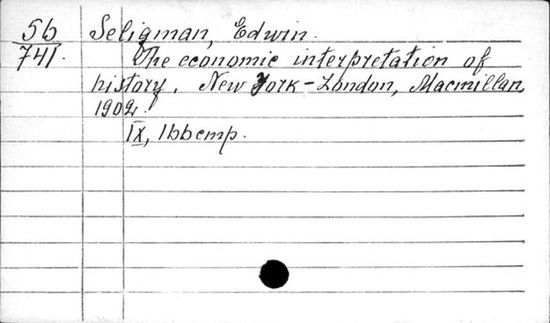 56
741.
Seligman, Edwin.
The economic interpretation of
history. New York-London, Macmillan,
1902.
IX, 166 стр.